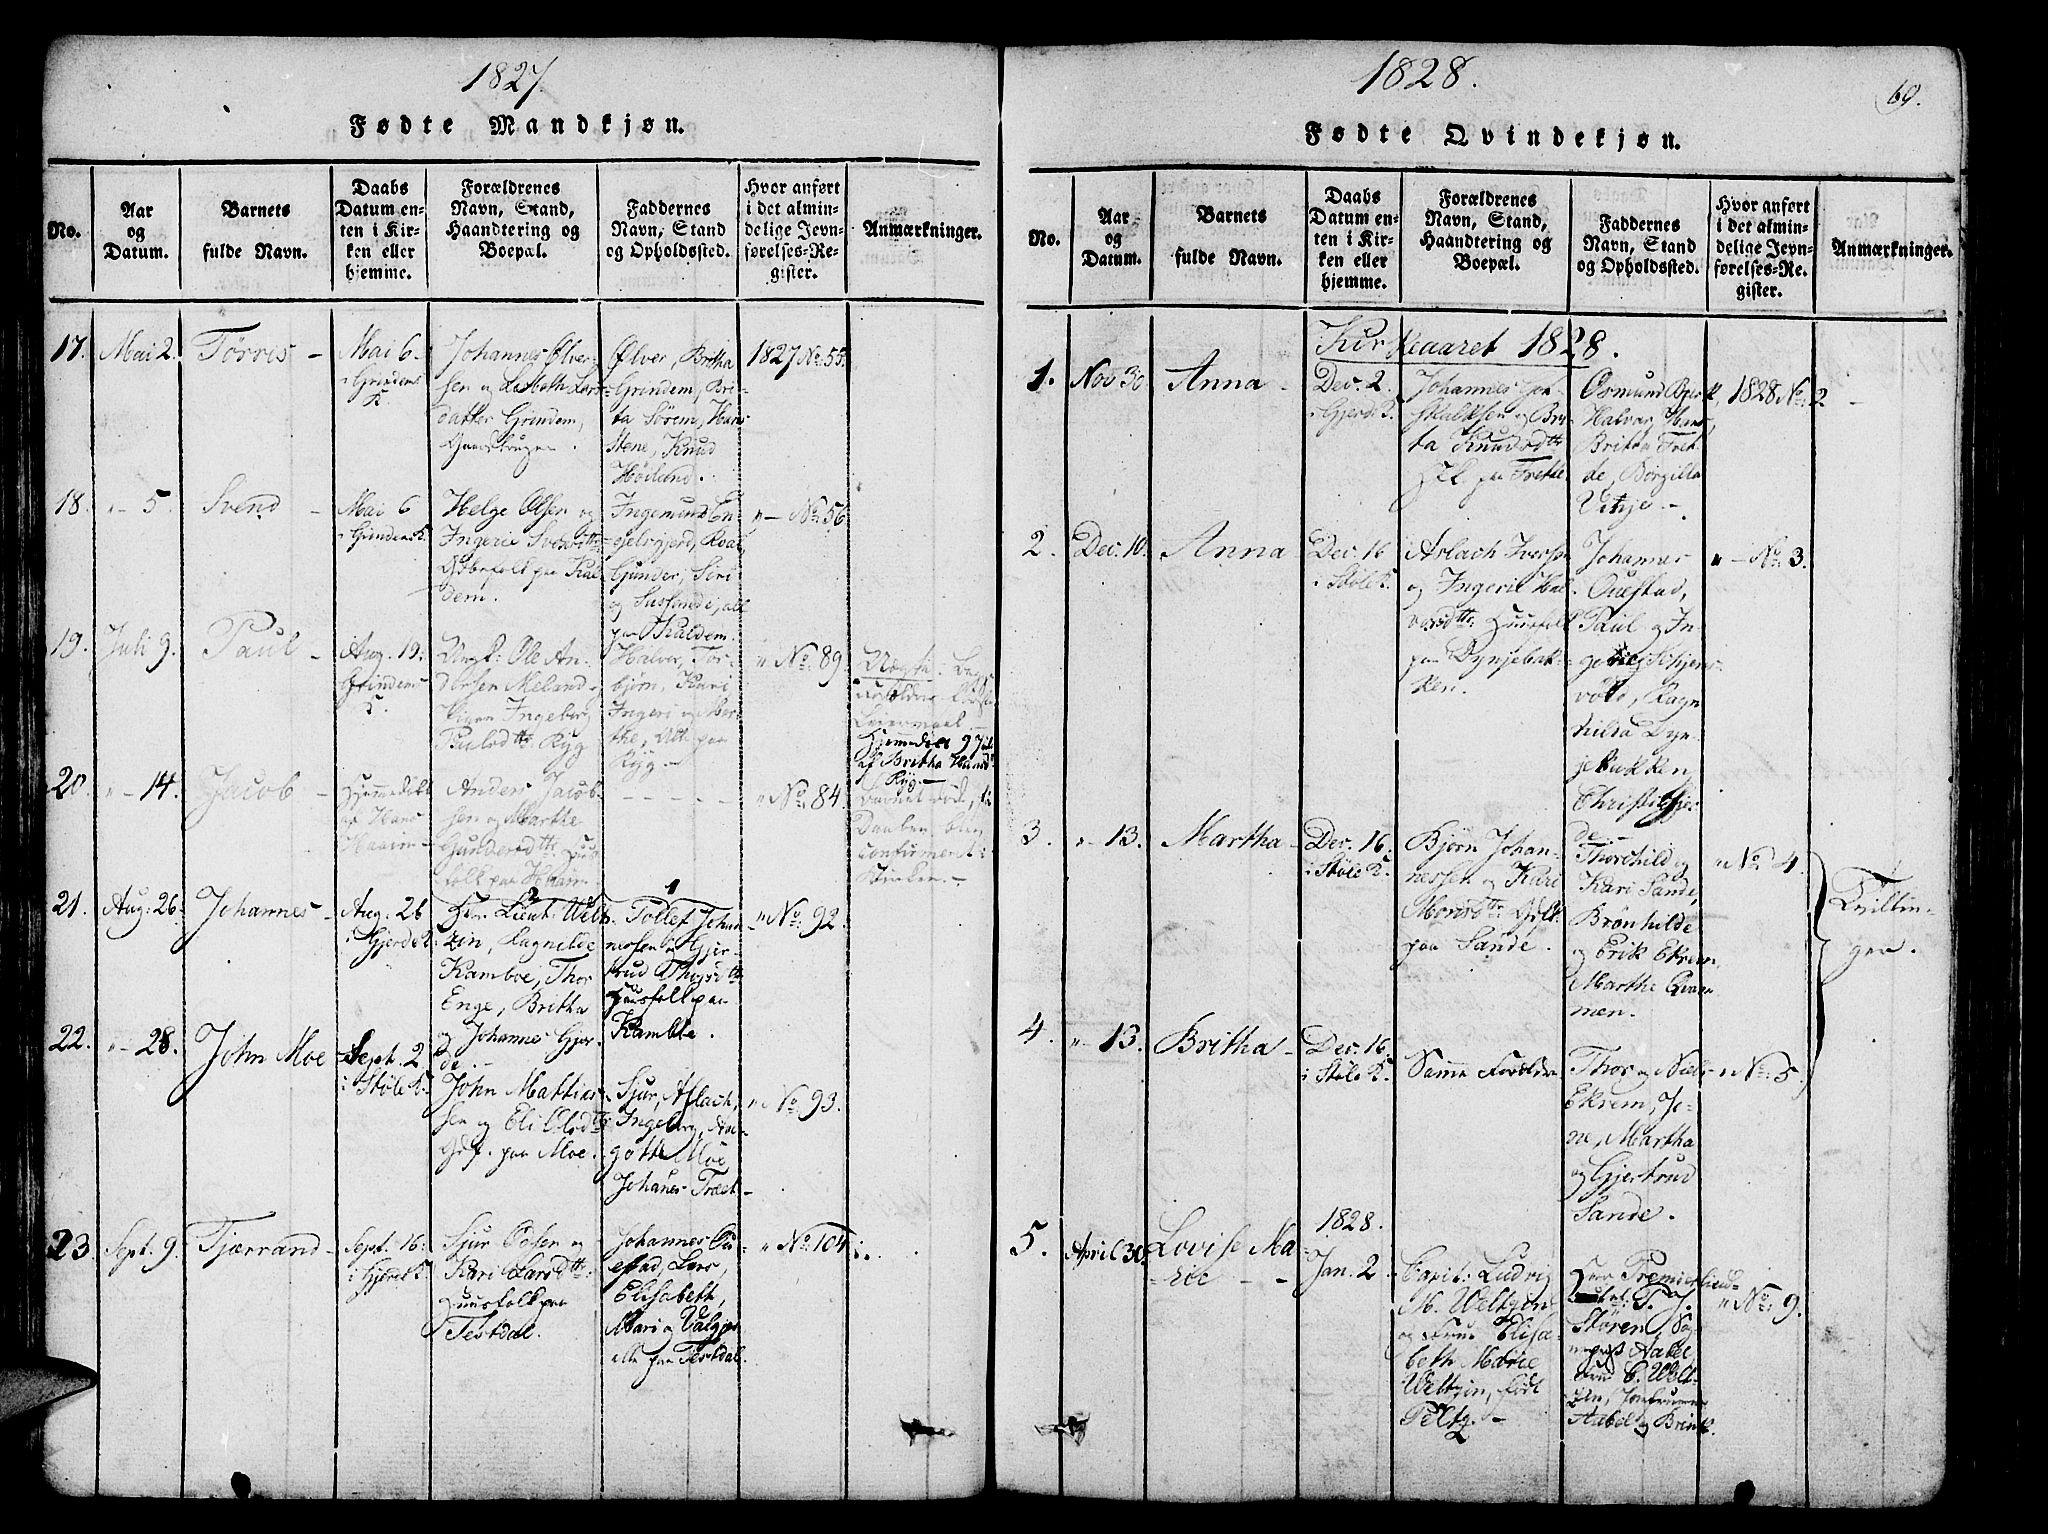 1827.
Fødte Mandkjøn.
No.
Aar
og
Datum.
Barnets
fulde Navn.
Daabs
Datum en-
ten i Kir-
ken eller
hjemme.
Forældrenes
Navn, Stand,
Haandtering og
Boepæl.
Faddernes
Navn, Stand
og Opholdssted.
Hvor anført
i det almin-
delige Jevn-
førelses-Re-
gister.
Anmærkninger.
17.
Mai 2.
Törres -
Mai 6.
i Grindems
K.
Johannes Ølver-
sen og Lisbeth Lars-
datter Grindem,
Ølver, Britha
Grindem, Bri-
ta Sörem, Hans
Stene, Knud
Höiland.
1827 No. 55.
18.
" - 5.
Svend -
Mai 6
i Grindems K.
Helge Olsen og
Ingerie Svensdtr
paa Kal-
dem.
Ingemund En-
gelsgjerd, Roal,
Gunder, Siri
og Sussande, all
paa Kaldem.
" - No. 56
19.
Juli 9.
Paul -
Aug. 19.
Grindems
K.
Ungk: Ole An-
dersen Meland -
Pigen Ingeberg
Paulsdtr Ryg
Halver, Tor-
björn, Kari
Ingeri og Mar-
the, Alle paa
Ryg -
" No. 89.
Uægte:
Leiermaal -
Hjemmedöbt 9 Juli
af Britha
Ryg -
20.
" - 14.
Jacob -
Hjemmedöbt
af Hans
Anders Jacob-
sen og Marthe
Gundersdtr Huus-
folk paa
- - - - -
" No. 84.
Barnet döde,
Daaben blev
confirmeret i
Kirken. -
21.
Aug: 26.
Johannes -
Aug: 26
i Gjerde K.
2
Hr: Lieut: Welt-
zin, Ragnilde
Kamboe, Thor
Enge, Britha
og Johannes Gjer-
de. -
1
Tollef Johan-
nessen og Gjer-
trud
Huusfolk paa
Kamble.
" No. 92.
22.
" - 28.
John Moe
Sept. 2
i Støle K.
John Mattias-
sen og Eli Olsdtr
Gdf. paa Moe.
Sjur, Aslach,
Ingeborg, An-
gotte Moe
Johanes Træet -
" No. 93.
23
Sept. 9.
Tjærrand -
Sept. 16.
i Gjerde K.
Sjur Olsen og
Kari Larsdtr
Huusfolk paa
Testdal.
Johannes Ou-
estad, Lars,
Elisabeth,
Mari og Valgjer
alle paa Testdal.
" No. 104.
1828.
69.
Fødte Qvindekjøn.
No.
Aar
og
Datum.
Barnets
fulde Navn.
Daabs
Datum en-
ten i Kir-
ken eller
hjemme.
Forældrenes
Navn, Stand,
Haandtering og
Boepæl.
Faddernes
Navn, Stand
og Opholdssted.
Hvor anført
i det almin-
delige Jevn-
førelses-Re-
gister.
Anmærkninger.
Kirkeaaret 1828.
1.
Nov 30.
Anna -
Dec. 2.
i Gjerde K.
Johannes
og Bri-
ta Knudsdtr
paa Frette
Osmund
Halvar,
Britha Fret-
te, Börgilla
1828 No. 2
2.
Dec. 10.
Anna
Dec. 16
i Støle K.
Aslach Iversen
og Ingerie Hal-
vorsdtr Huusfolk
paa Dynjebak-
ken.
Johannes
Ouestad,
Paul og In-
völd, Ragn-
hilda Dyn-
jebakken,
Christi Gjer-
de. -
" - No. 3.
3.
" - 13.
Martha -
Dec. 16.
i Støle K.
Bjørn Johan-
nessen og Kari
Monsdtr Gdflk.
paa Sande.
Thorchild og
Kari Sande,
Brönhilde
og Erik Ekrem,
Marthe Qvam-
men.
" No. 4.
Tvillin-
ger.
4.
" - 13.
Britha -
Dec. 16.
i Støle K.
Samme Forældre
Thor og Niels
Ekrem, Jo-
ne, Martha
og Gjertrud
Sande.
" No. 5.
5.
April 30.
Lovise Ma-
rie - -
1828.
Jan. 2
Capit: Ludvig
M. Weltzin
og Frue Elisa-
beth Marie
Weltzin, født
Peltz. -
Herr Premierlieut-
T. J.
Stören,
Aabel
Frue C. Welt-
zin, Jomfruerne
Aabel og Brink.
" No. 9.